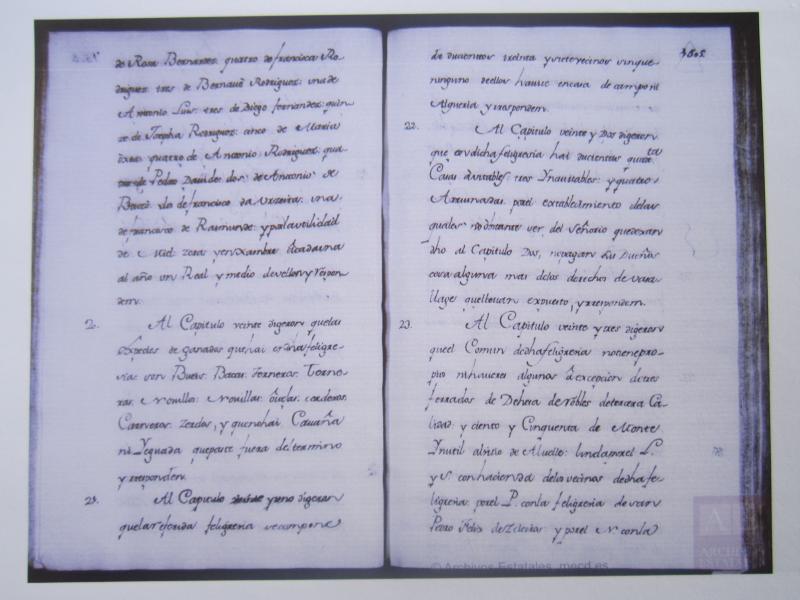 de Rosa Bernardez quatro de francisca Ro
driguez tres de Bernavé Rodriguez: una de
Antonio Luis: tres de Diego fernandez: quin
ce de Josepha Rodriguez: cinco de Maria
quatro de Antonio Rodriguez: qua
tro de Pedro dos: de Antonio de
de francisco da una
de francisco de Raimunde: y por la utilidad
de Miel zera y enxambre
al año un Real y medio de vellon y respon
den.
2. Al Capitulo veinte digeron que las
Expecies de ganados que hai en dha feligre-
sia son Bueis: Bacas: terneros: terne
ras: Novillos: Novillas: obejas: corderos:
Carneros: zerdos, y que no hai Cavaña
ni Yeguada que paste fuera del termino
y responden.
21. Al Capitulo veinte y uno digeron
que la referida feligresia se compone
de ducientos treinta y siete vecinos sin que
ninguno de ellos havite en casa de campo ni
Alqueria y responden.
22. Al Capitulo veinte y Dos digeron
que en dicha feligresia hai ducientos quarta
Casas avitables tres Ynavitables: y quatro
Arruinadas por el establecimiento de las
quales no obstante ser del Señorio que dexan
dho al Capitulo Dos, no pagan sus Dueños
cosa alguna mas de los derechos de vasa
llage que llevan expuesto, y responden.
23. Al Capitulo veinte y tres digeron
que el Comun de dha feligresia no tiene pro-
pio ni haveres algunos á excepcion de tres
ferrados de Dehesa de Robles de tercera Ca-
lidad: y ciento y Cinquenta de Monte
Ynutil al sitio de linda por el L.
y S. con hacienda de los vecinos de dha fe-
ligresia: por el P. con la feligresia de san
Pedro Felix de y por el N. con la
© Archivos Estatales, mecd.es
ARCHIVOS
ESTATALES